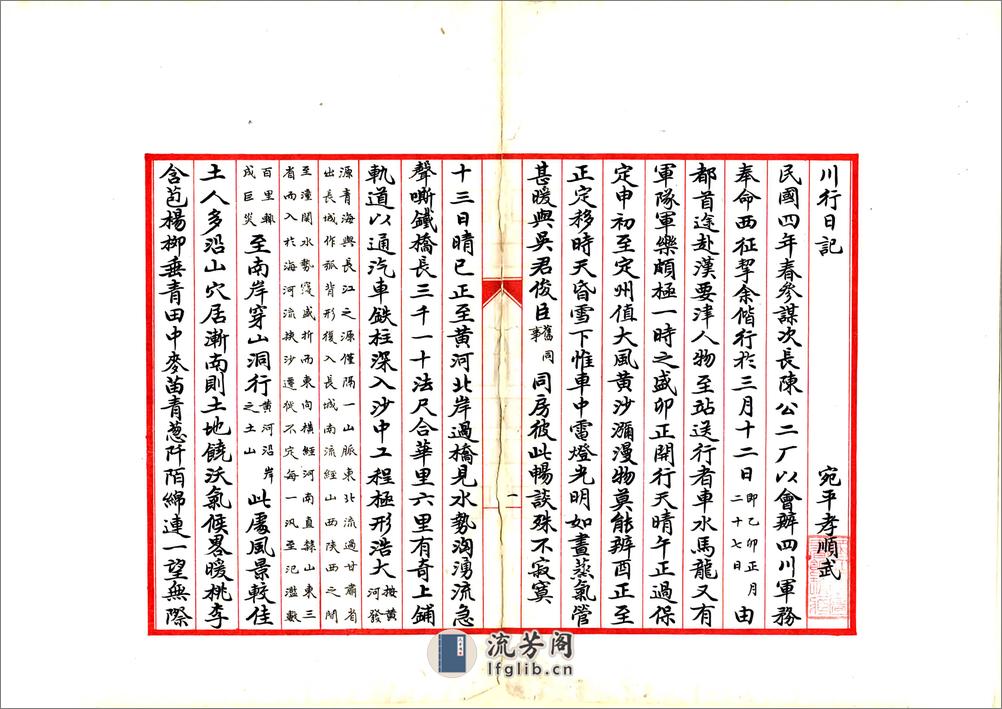 川行日記
宛平孝順武
民國四年春參謀次長陳公二厂以會辨四川軍務
奉命西征挈余偕行於三月十二日即乙卯正月二十七日由
都首途赴漢要津人物至站送行者車水馬龍又有
軍隊軍樂頗極一時之盛卯正開行天晴午正過保
定申初至定州值大風黃沙瀰漫物莫能辨酉正至
正定移時天昏雪下惟車中電燈光明如晝蒸氣管
甚暖與吳君俊臣舊同事同房彼此暢談殊不寂寞
一
十三日晴巳正至黃河北岸過橋見水勢洶湧流急
聲嘶鐵橋長三千一十法尺合華里六里有奇上鋪
軌道以通汽車鉄柱深入沙中工程極形浩大按黃河發
源青海與長江之源僅隔一山脈東北流過甘肅省
出長城作弧背形復入長城南流經山西陝西之間
至潼關水勢寖盛折而東向橫經河南直隸山東三
省而入於海河流挾沙遷徙不定每一汎至氾濫數
百里輒成巨災至南岸穿山洞行黃河沿岸之土山此處風景較佳
土人多沿山穴居漸南則土地饒沃氣候畧暖桃李
含苞楊柳垂青田中麥苗青蔥阡陌綿連一望無際
流芳阁
lfglib.cn